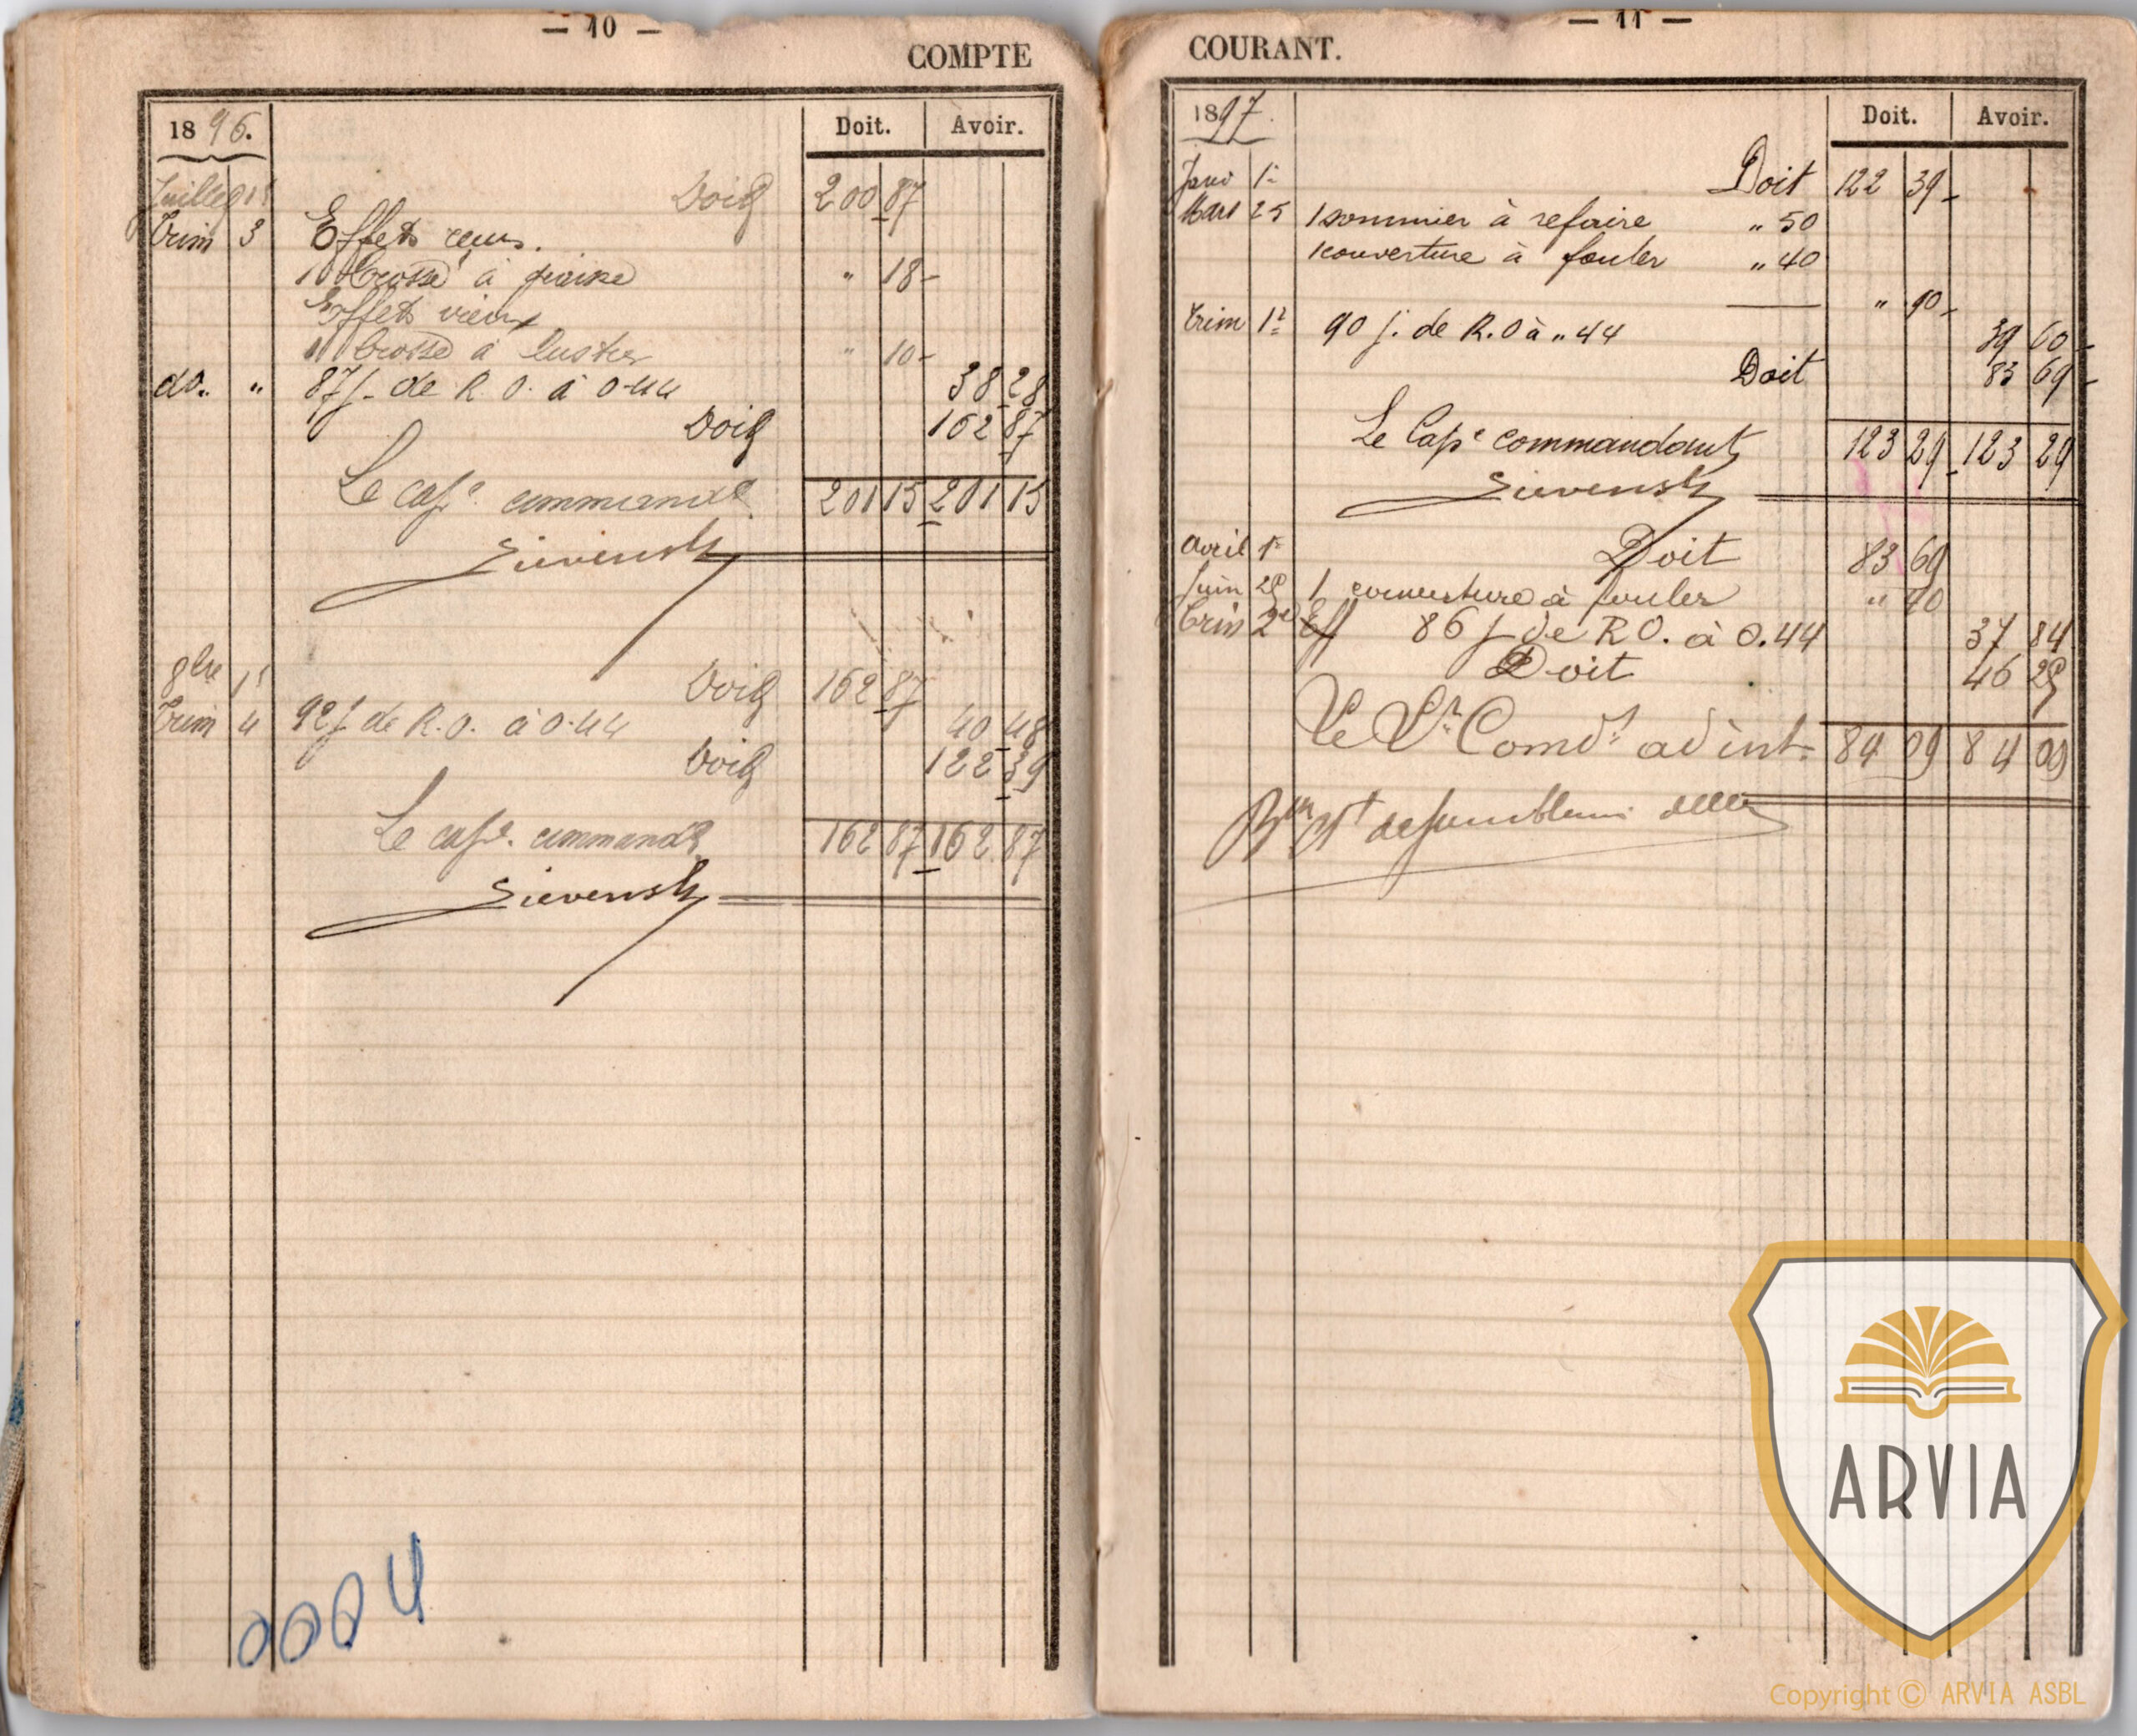 — 10 —
COMPTE
1896. Doit. Avoir.
Juillet 1r Doit 200 87
Trim 3 Effets reçus.
1 brosse à graisse " 18 -
Effets vieux
1 brosse à lustrer " 10 -
do. " 87 j. de R. O. à 0.44 38 28
Doit 162 87
Le capе. commandt 201 15 201 15
Sievensh
8bre 1r Doit 162 87
Trim 4 92 j. de R. O. à 0.44 40 48
Doit 122 39
Le cape. commandt 162 87 162 87
Sievensh
0004
— 11 —
COURANT.
1897. Doit. Avoir.
Janv 1r Doit 122 39 -
Mars 25 1 sommier à refaire " 50
1 couverture à fouler " 40
" 90 -
Trim 1r 90 j. de R. O à " 44 39 60 -
Doit 83 69 -
Le Cape commandant 123 29 123 29
Sievensh
Avril 1r Doit 83 69
Juin 29 1 couverture à fouler " 40
Trim 2e Eff 86 j de R O. à 0.44 37 84
Doit 46 25
Le Lt Comdt ad int. 84 09 84 09
ARVIA
Copyright © ARVIA ASBL